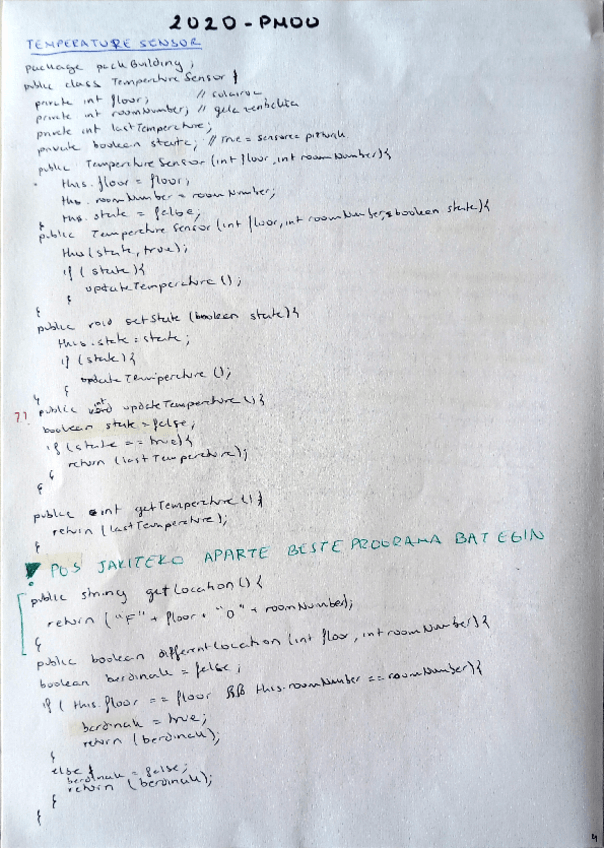 2020-PMOO
TEMPERATURE SENSOR
package packBuilding;
public class TemperatureSensor {
private int floor; // solairua
private int roomNumber; // gela zenbakia
private int lastTemperature;
private boolean state; // true = sensorea piztuta
public TemperatureSensor (int floor, int roomNumber){
this.floor = floor;
this.roomNumber = roomNumber;
this.state = false;
}
public TemperatureSensor (int floor, int roomNumber, boolean state){
this (state, true);
if (state){
updateTemperature ();
}
}
public void setState (boolean state){
this.state = state;
if (state){
updateTemperature ();
}
}
?? public int updateTemperature (){
boolean state = false;
if (state == true){
return (lastTemperature);
}
}
public int getTemperature (){
return (lastTemperature);
}
POS JAKITEKO APARTE BESTE PROGRAMA BAT EGIN
public string getLocation () {
return ("F" + floor + "O" + roomNumber);
}
public boolean differentLocation (int floor, int roomNumber){
boolean berdinak = false;
if (this.floor == floor && this.roomNumber == roomNumber){
berdinak = true;
return (berdinak);
}
else {
berdinak = false;
return (berdinak);
}
}
4